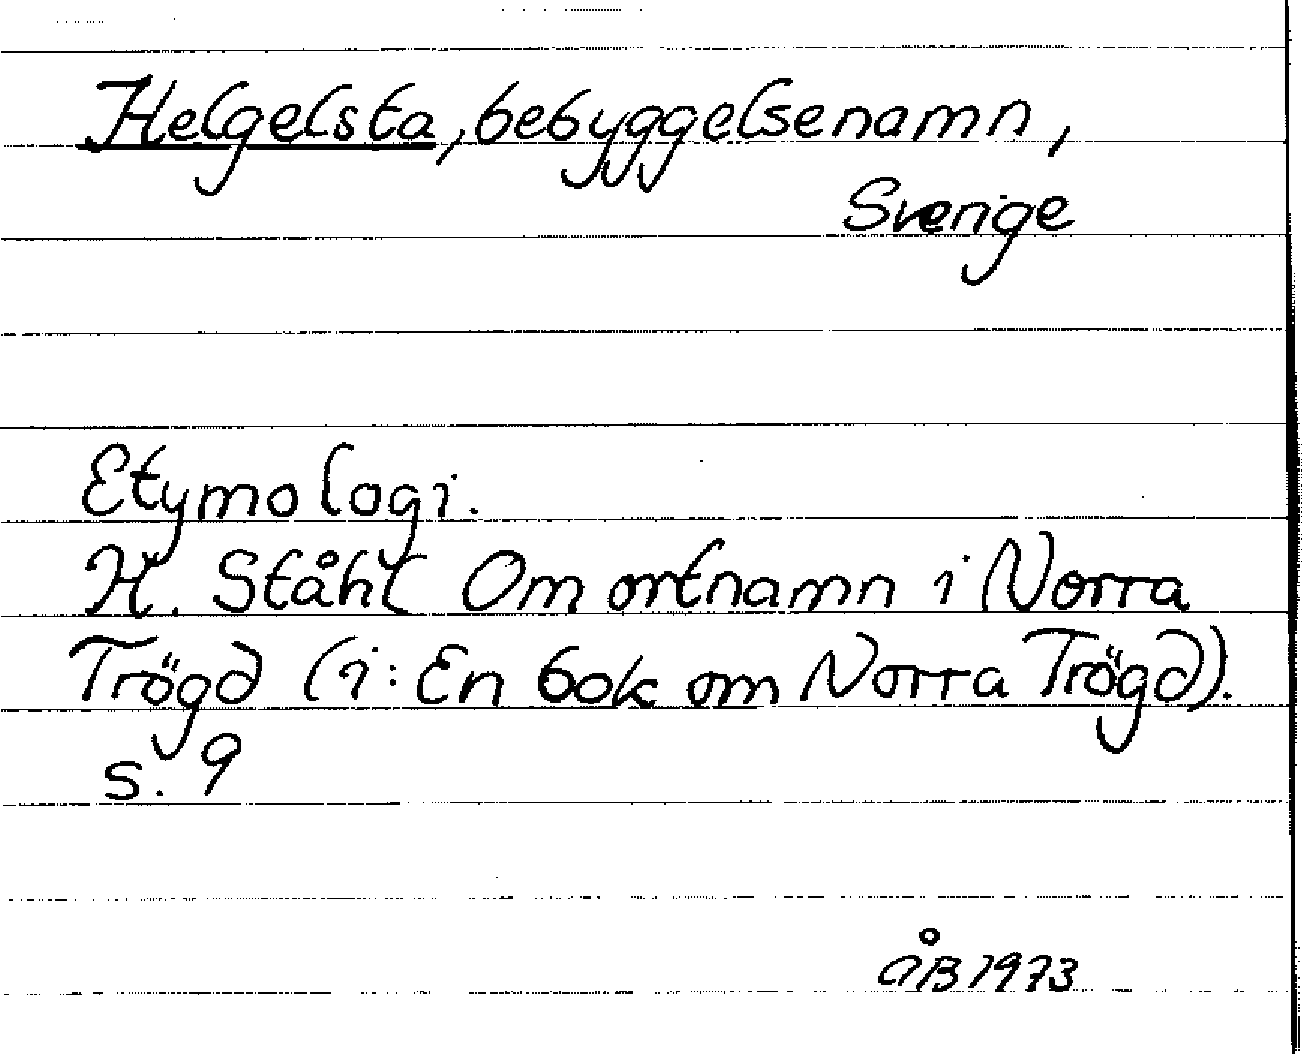 Helgelsta, bebyggelsenamn,
Sverige
Etymologi.
H. Ståhl Om ortnamn i Norra
Trögd (i: En bok om Norra Trögd).
s. 9
ÅB 1973